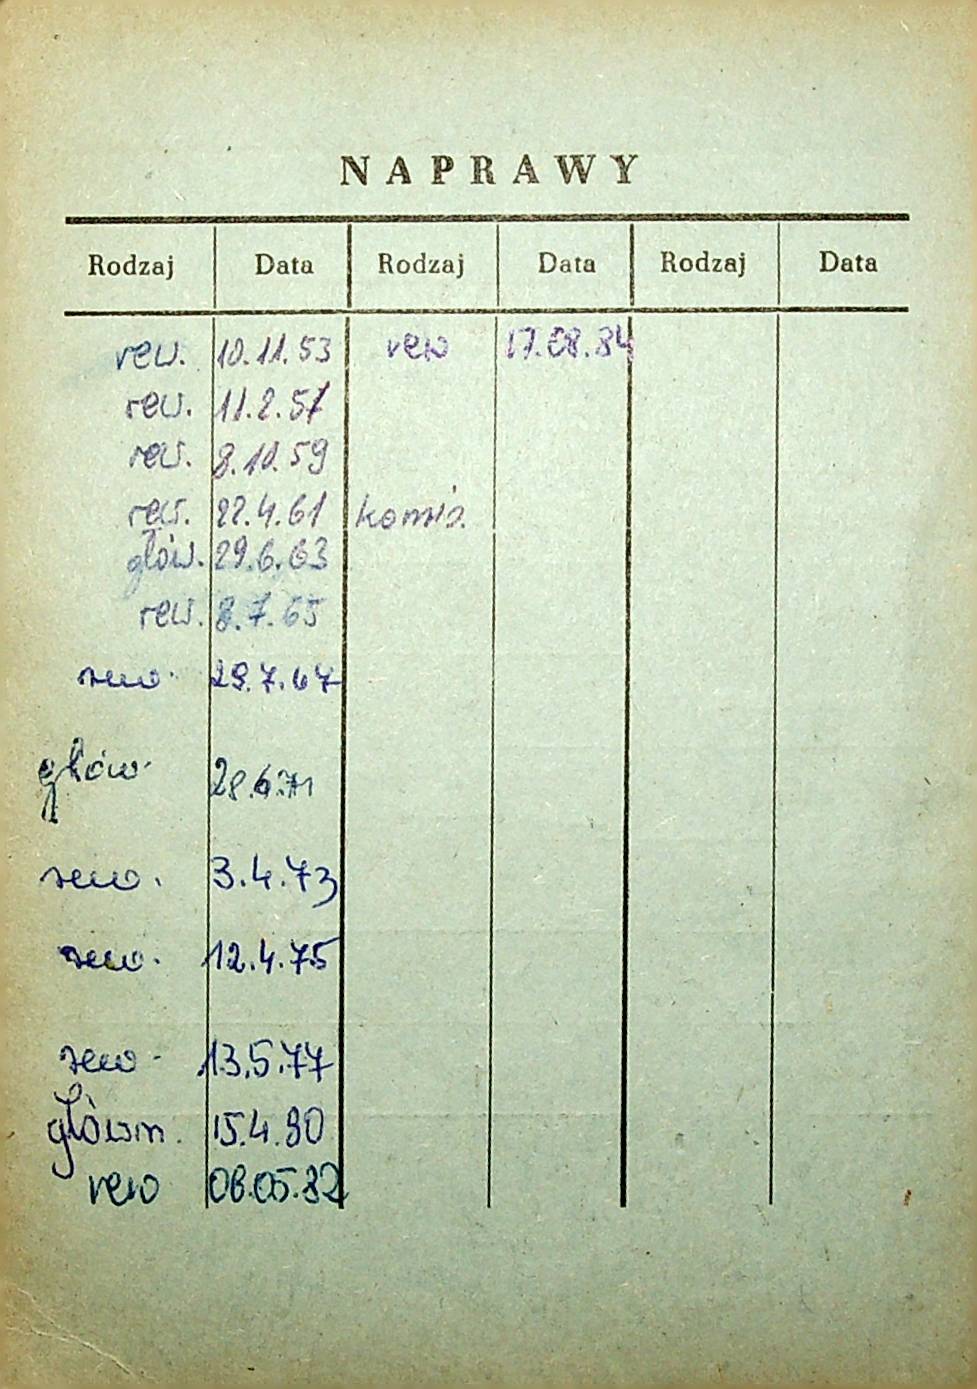 NAPRAWY
Rodzaj Data Rodzaj Data Rodzaj Data
rew. 10.11.53 rew 17.08.84
rew. 11.2.57
rew. 8.10.59
rew. 22.4.61 komis.
głów. 29.6.63
rew. 8.7.65
rew. 29.7.67
głów. 28.6.71
rew. 3.4.73
rew. 12.4.75
rew. 13.5.77
główn. 15.4.80
rew 08.05.82